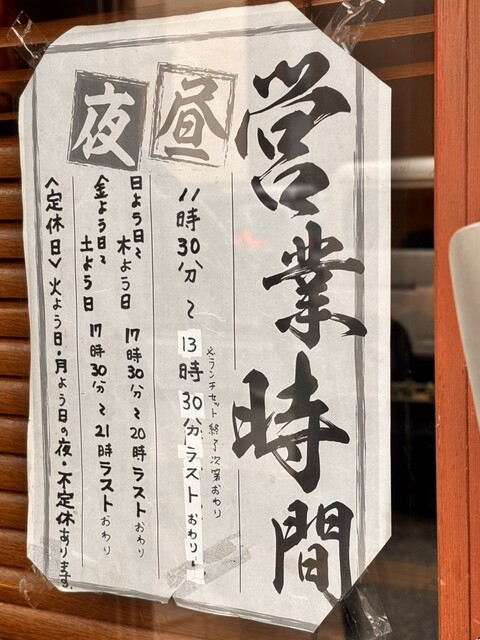 営業時間
昼
11時30分〜13時30分ラストおわり。
※ランチセット終了次第おわり
夜
日よう日〜木よう日 17時30分〜20時ラストおわり
金よう日〜土よう日 17時30分〜21時ラストおわり
<定休日> 火よう日・月よう日の夜・不定休あります。